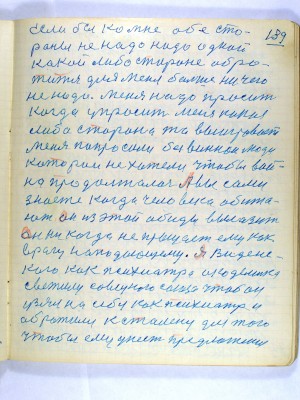 189
если бы ко мне обе сто-
роны не надо надо одной
какой либо стороне обра-
тится для меня больше ничего
не надо. меня надо просит
когда упросит меня какая
либо сторона та выиграет
меня попросили бы воинов люди
которые не хотели чтобы вой-
на продолжалас А вы сами
знаете когда человека обижа-
ют он из этой обиды вылазит
он никогда не прощает ему как
врагу нападающему. Я
кого как психиатра академика
светилу советского союза чтобы он
взял на себя как психиатр и
обратился к сталину для того
чтобы ему учест предложения